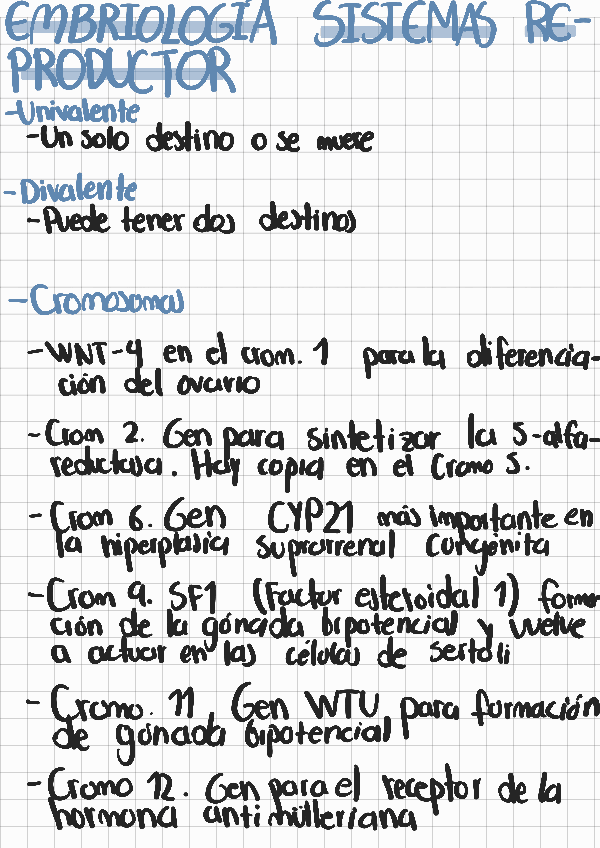 EMBRIOLOGÍA SISTEMAS RE-
PRODUCTOR
-Univalente
-Un solo destino o se muere
-Divalente
-Puede tener dos destinos
-Cromosomas
-WNT-4 en el crom. 1 para la diferencia-
ción del ovario
-Crom 2. Gen para sintetizar la 5-alfa-
reductasa. Hay copia en el Cromo 5.
-Crom 6. Gen CYP21 más importante en
la hiperplasia suprarrenal congénita
-Crom 9. SF1 (Factor esteroidal 1) forma-
ción de la gónada bipotencial y vuelve
a actuar en las células de Sertoli
- Cromo. 11. Gen WTU para formación
de gónada bipotencial
-Cromo 12. Gen para el receptor de la
hormona antimülleriana